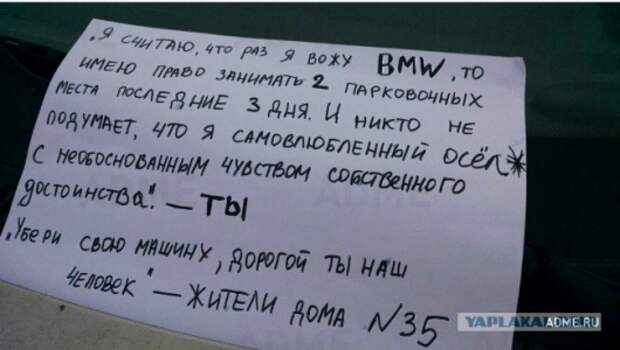 „Я СЧИТАЮ, ЧТО РАЗ Я ВОЖУ BMW, ТО
ИМЕЮ ПРАВО ЗАНИМАТЬ 2 ПАРКОВОЧНЫХ
МЕСТА ПОСЛЕДНИЕ 3 ДНЯ. И НИКТО НЕ
ПОДУМАЕТ, ЧТО Я САМОВЛЮБЛЕННЫЙ ОСЁЛ*
С НЕОБОСНОВАННЫМ ЧУВСТВОМ СОБСТВЕННОГО
ДОСТОИНСТВА." — ТЫ
„УБЕРИ СВОЮ МАШИНУ, ДОРОГОЙ ТЫ НАШ
ЧЕЛОВЕК" — ЖИТЕЛИ ДОМА N35
ADME
ADME.RU